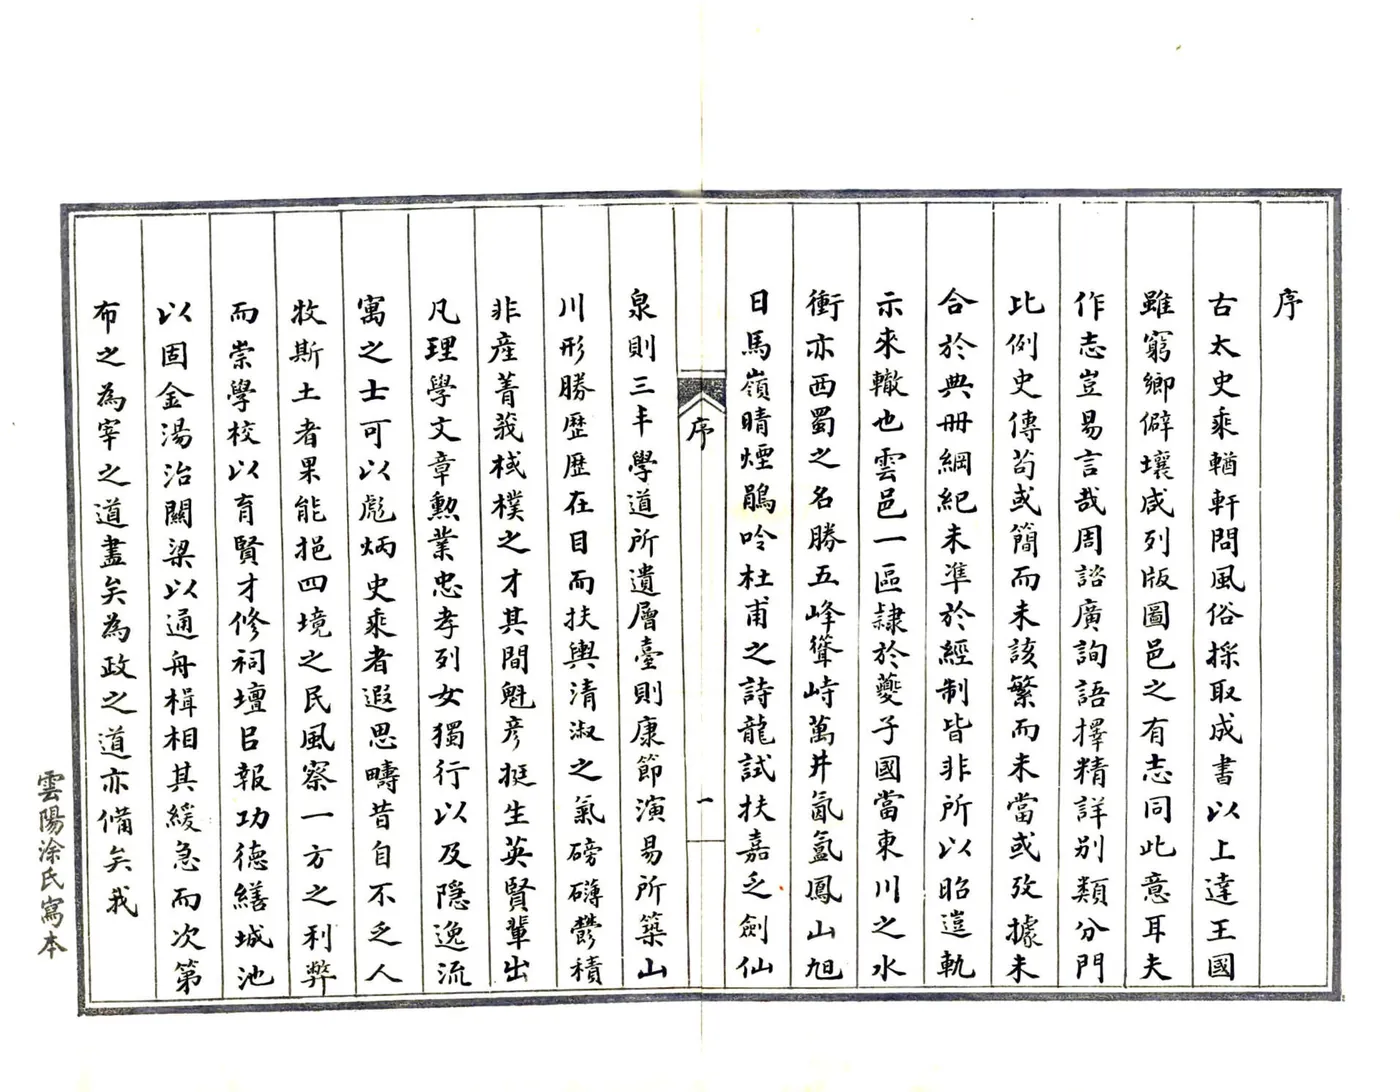 序
古太史乘輶軒問風俗採取成書以上達王國
雖窮鄉僻壤咸列版圖邑之有志同此意耳夫
作志豈易言哉周諮廣詢語擇精詳别類分門
比例史傳苟或簡而未該繁而未當或攷據未
合於典冊綱紀未準於經制皆非所以昭遵軌
示來轍也雲邑一區隸於夔子國當東川之水
衝亦西蜀之名勝五峰聳峙萬井氤氳鳳山旭
日馬嶺晴煙鵑吟杜甫之詩龍試扶嘉之劍仙
序
一
泉則三丰學道所遺層臺則康節演易所築山
川形勝歷歷在目而扶輿清淑之氣磅礴鬱積
非産菁莪棫樸之才其間魁彥挺生英賢輩出
凡理學文章勲業忠孝列女獨行以及隱逸流
寓之士可以彪炳史乘者遐思疇昔自不乏人
牧斯土者果能挹四境之民風察一方之利弊
而崇學校以育賢才修祠壇㠯報功德繕城池
以固金湯治關梁以通舟楫相其緩急而次第
布之為宰之道盡矣為政之道亦備矣我
雲陽涂氏寫本